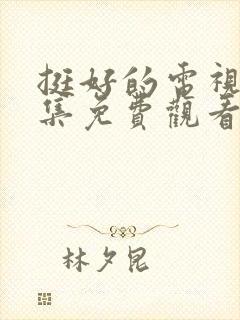 挺好的電視
集免費觀看
林夕昆